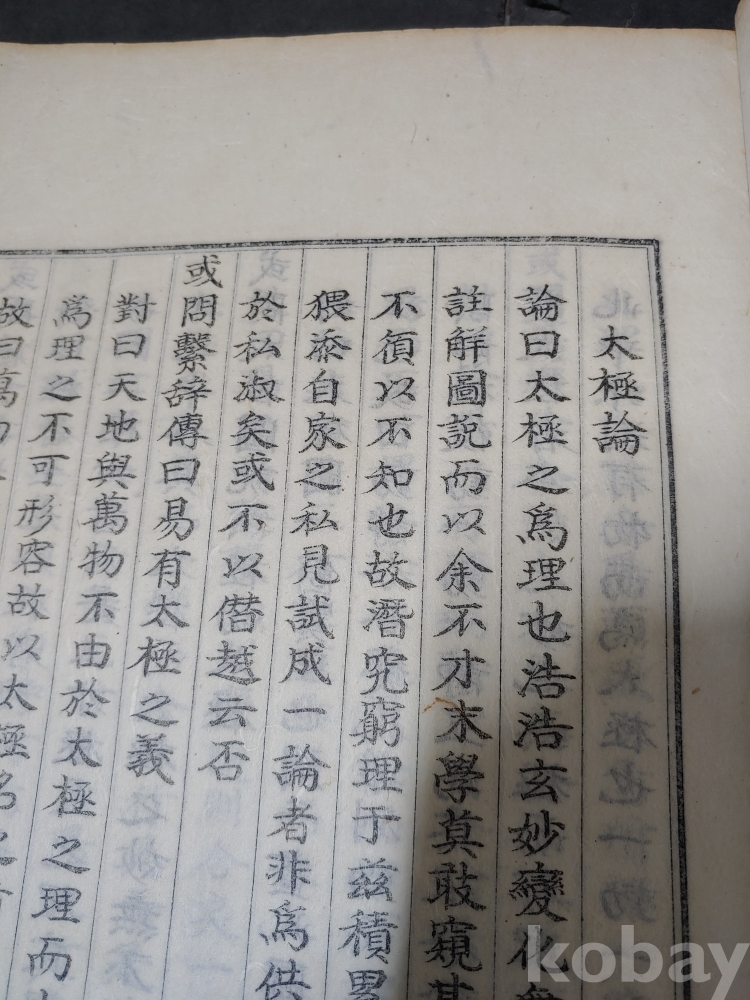 太極論
論曰太極之爲理也浩浩玄妙變化無
註解圖説而以余不才末學莫敢窺其
不須以不知也故潛究窮理于茲積累
猥添自家之私見試成一論者非爲供
於私淑矣或不以僭越云否
或問繫辞傳曰易有太極之義
對曰天地與萬物不由於太極之理而
爲理之不可形容故以太極名之
故曰萬
kobay